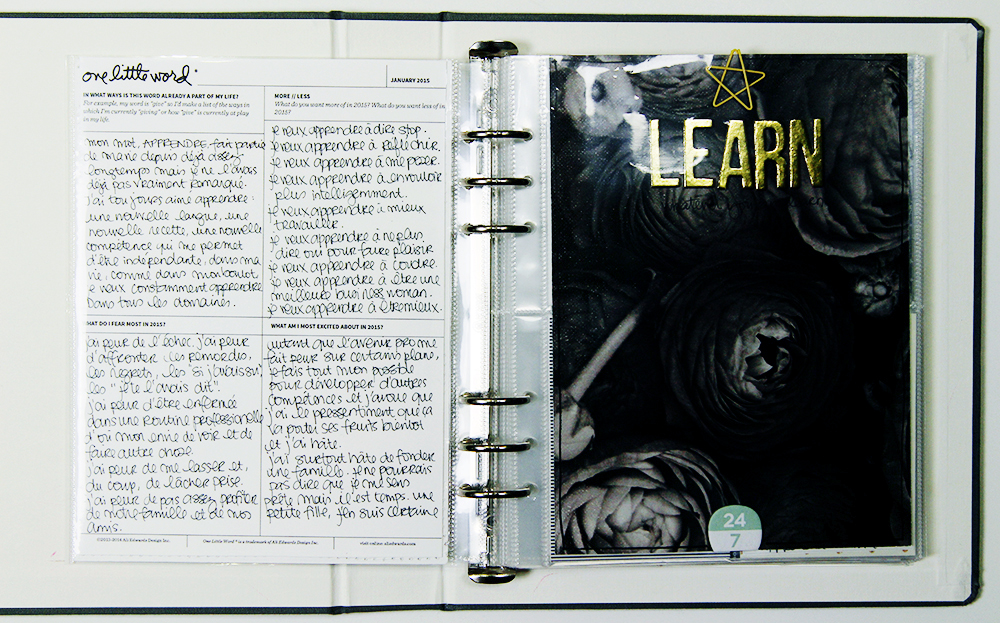 one little word®
JANUARY 2015
IN WHAT WAYS IS THIS WORD ALREADY A PART OF MY LIFE?
For example, my word is "give" so I'd make a list of the ways in
which I'm currently "giving" or how "give" is currently at play
in my life.
mon mot, APPRENDRE, fait partie
de ma vie depuis déjà assez
longtemps mais je ne l'avais
déjà pas vraiment remarqué.
j'ai toujours aimé apprendre:
une nouvelle langue, une
nouvelle recette, une nouvelle
compétence qui me permet
d'être indépendante. dans ma
vie, comme dans mon boulot
je veux constamment apprendre
Dans tous les domaines.
MORE // LESS
What do you want more of in 2015? What do you want less of in
2015?
je veux apprendre à dire stop.
je veux apprendre à réfléchir.
je veux apprendre à me poser.
je veux apprendre à
plus intelligemment.
je veux apprendre à mieux
travailler.
je veux apprendre à ne plus
dire oui pour faire plaisir
je veux apprendre à coudre.
je veux apprendre à être une
meilleure business woman.
je veux apprendre à être mieux.
HAT DO I FEAR MOST IN 2015?
ai peur de l'échec. j'ai peur
d'affronter les remords,
les regrets, les "si j'avais su",
les "je te l'avais dit".
j'ai peur d'être enfermée
dans une routine professionelle
d'où mon envie de voir et de
faire autre chose.
j'ai peur de me lasser et,
du coup, de lâcher prise.
j'ai peur de pas assez profiter
de notre famille et de nos
amis.
WHAT AM I MOST EXCITED ABOUT IN 2015?
autant que l'avenir pro me
fait peur sur certains plans,
je fais tout mon possible
pour développer d'autres
compétences et j'avoue que
j'ai le pressentiment que ça
va porter ses fruits bientôt
et j'ai hâte.
j'ai surtout hâte de fonder
une famille. je ne pourrais
pas dire que je me sens
prête mais il est temps. une
petite fille, j'en suis certaine
©2011-2014 Ali Edwards Design Inc.
One Little Word® is a trademark of Ali Edwards Design Inc.
visit online: aliedwards.com
LEARN
24
7